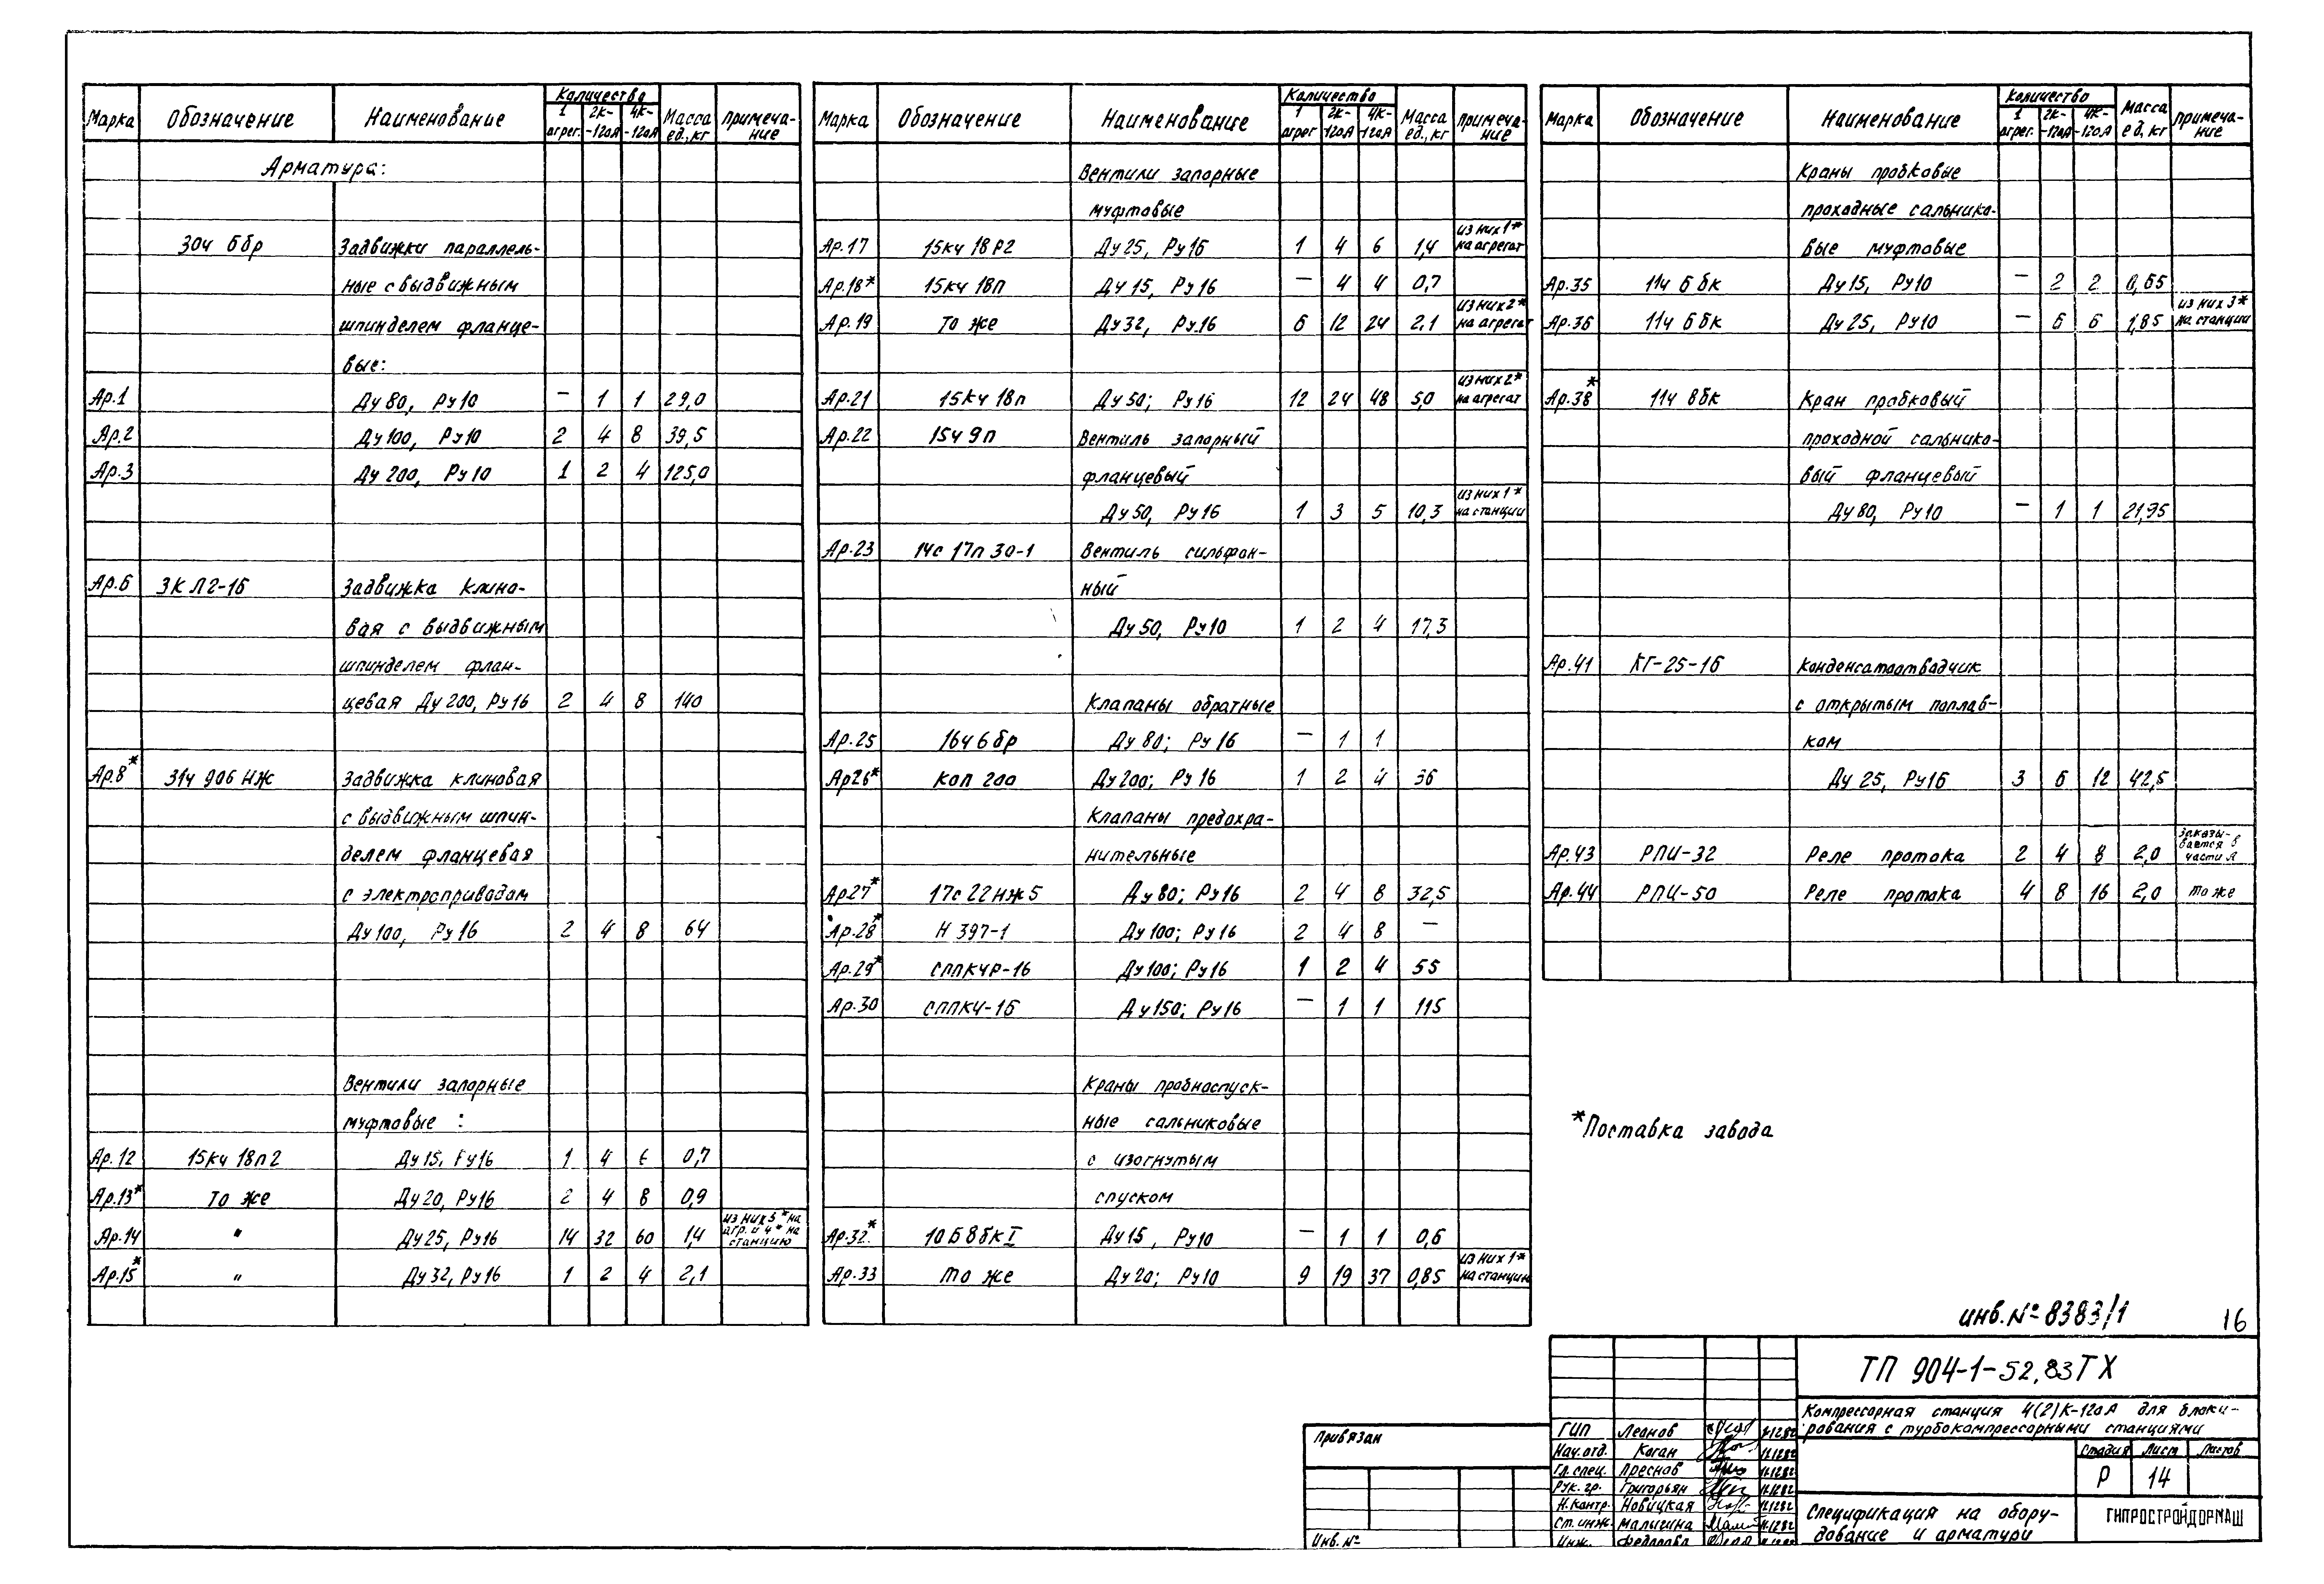 Марка Обозначение Наименование Количество Масса ед., кг Примечание
1 агрег. 2К-120А 4К-120А
Арматура:
30ч 6бр Задвижки параллель-
ные с выдвижным
шпинделем фланце-
вые:
Ар.1 Ду 80, Ру10 — 1 1 29,0
Ар.2 Ду100, Ру10 2 4 8 39,5
Ар.3 Ду 200, Ру10 1 2 4 125,0
Ар.6 ЗКЛ2-16 Задвижка клино-
вая с выдвижным
шпинделем флан-
цевая Ду 200, Ру16 2 4 8 140
Ар8* 31ч 906 нж Задвижка клиновая
с выдвижным шпин-
делем фланцевая
с электроприводом
Ду100, Ру16 2 4 8 64
Вентили запорные
муфтовые :
Ар.12 15кч 18п2 Ду15, Ру16 1 4 6 0,7
Ар.13* То же Ду20, Ру16 2 4 8 0,9
Ар.14 " Ду25, Ру16 14 32 60 1,4 из них 5* на агр. и 4* на станцию
Ар.15* " Ду32, Ру16 1 2 4 2,1
Марка Обозначение Наименование Количество Масса ед., кг Примечание
1 агрег 2К-120А 4К-120А
Вентили запорные
муфтовые
Ар.17 15кч 18Р2 Ду 25, Ру16 1 4 6 1,4 из них 1* на агрегат
Ар.18* 15кч 18п Ду 15, Ру16 — 4 4 0,7
Ар.19 То же Ду32, Ру.16 6 12 24 2,1 из них 2* на агрегат
Ар.21 15кч 18п Ду 50; Ру16 12 24 48 5,0 из них 2* на агрегат
Ар.22 15ч 9п Вентиль запорный
фланцевый
Ду 50, Ру16 1 3 5 10,3 из них 1* на станции
Ар.23 14с 17п 30-1 Вентиль сильфон-
ный
Ду 50, Ру10 1 2 4 17,3
Клапаны обратные
Ар.25 16ч 6бр Ду 80; Ру16 — 1 1
Ар26* КОП 200 Ду200; Ру 16 1 2 4 36
Клапаны предохра-
нительные
Ар27* 17с 22 нж 5 Ду 80; Ру16 2 4 8 32,5
Ар.28* Н 397-1 Ду100; Ру16 2 4 8 —
Ар.29* СППК4Р-16 Ду100; Ру16 1 2 4 55
Ар.30 СППК4-16 Ду150; Ру16 — 1 1 115
Краны пробноспуск-
ные сальниковые
с изогнутым
спуском
Ар.32.* 10Б8бкI Ду15, Ру10 — 1 1 0,6
Ар.33 То же Ду 20; Ру10 9 19 37 0,85 из них 1* на станцию
Марка Обозначение Наименование Количество Масса ед, кг Примечание
1 агрег. 2К-120А 4К-120А
Краны пробковые
проходные сальнико-
вые муфтовые
Ар.35 11ч 6бк Ду15, Ру10 — 2 2 0,65
Ар.36 11ч 6бк Ду 25, Ру10 — 6 6 1,85 из них 3* на станции
Ар.38* 11ч 8бк Кран пробковый
проходной сальнико-
вый фланцевый
Ду 80, Ру10 — 1 1 21,95
Ар.41 КГ-25-16 Конденсатоотводчик
с открытым поплав-
ком
Ду 25, Ру16 3 6 12 42,5
Ар.43 РПИ-32 Реле протока 2 4 8 2,0 заказы-вается в части А
Ар.44 РПИ-50 Реле протока 4 8 16 2,0 то же
*Поставка завода
инв.№ 8383/1 16
ТП 904-1-52.83ТХ
Компрессорная станция 4(2)К-120А для блоки-
рования с турбокомпрессорными станциями
Привязан
Инв. №
ГИП Леонов 12.82
Нач.отд. Коган 12.82
Гл.спец. Преснов 12.82
Рук. гр. Григорьян 12.82
Н.контр. Новицкая 12.82
Ст.инж. Малыгина 12.82
Инж. Федорова
Стадия Лист Листов
Р 14
Спецификация на обору-
дование и арматуру
ГИПРОСТРОЙДОРМАШ